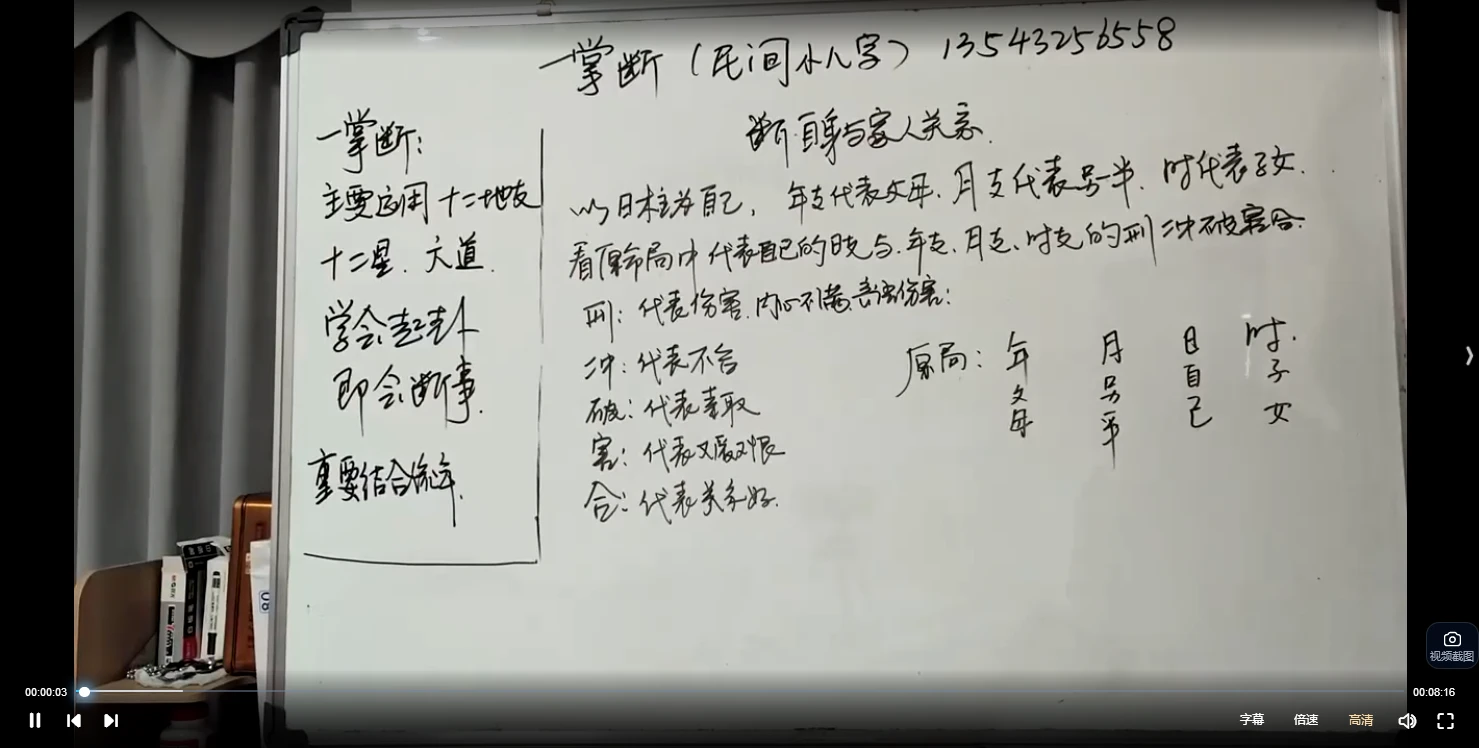 一掌断（民间小八字）13543256558
一掌断：
主要应用十二地支
十二星．六道．
学会起卦
即会断事．
重要结合流年．
断自身与家人关系．
以日柱为自己，年支代表父母．月支代表另一半．时代表子女．
看原命局中代表自己的日支与．年支．月支、时支的刑冲破害合．
刑：代表伤害．内心不满．言语伤害：
冲：代表不合
破：代表索取
害：代表又爱又恨
合：代表关系好．
原局：年 月 日 时．
父母 另半 自己 子女
视频截图
00:00:03
00:08:16
字幕 倍速 高清